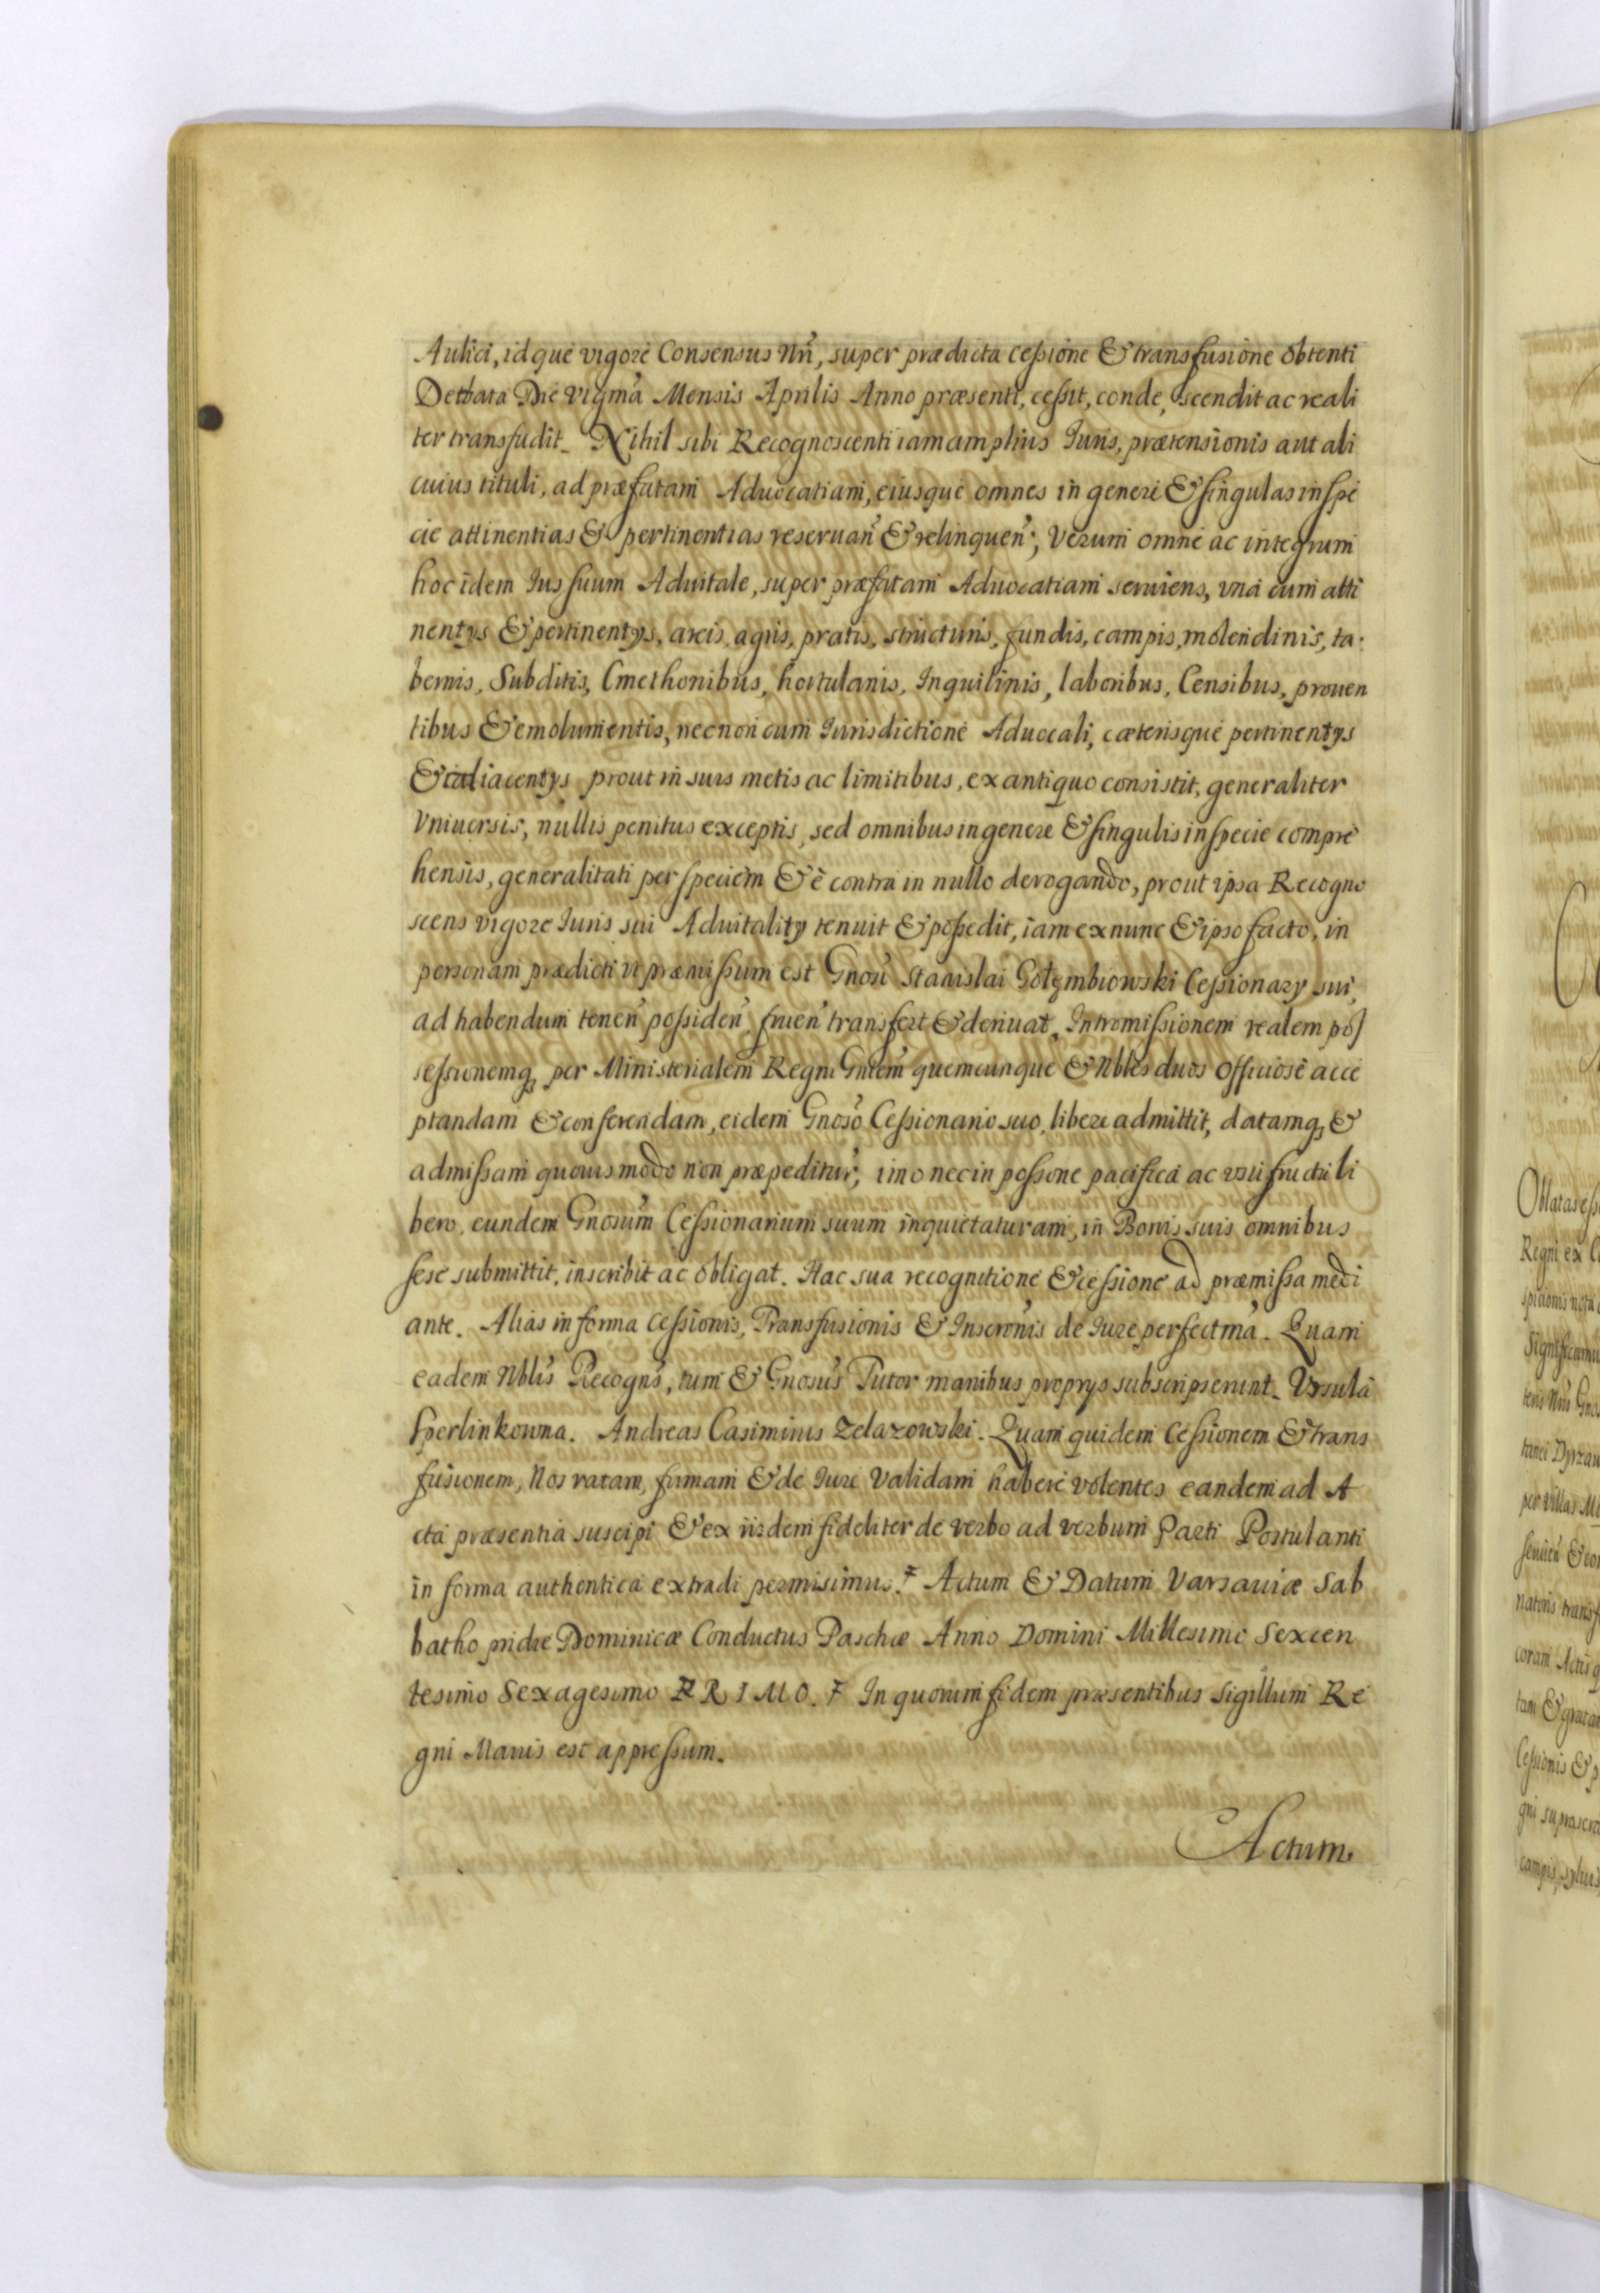 Aulici, idque vigore Consensus Nri, super prædicta cessione & transfusione obtenti
De Data Die Vigma Mensis Aprilis Anno præsenti, cessit, conde, scendit ac reali
ter transfudit. Nihil sibi Recognoscenti iam amplius Iuris, prætensionis aut ali
cuius tituli, ad præfatam Aduocatiam, eiusque omnes in genere & singulas in spe
cie attinentias & pertinentias reseruan̄ & relinquen̄; Verum omne ac integrum
hoc idem Ius suum Aduitale, super præfatam Aduocatiam seruiens, vná cum atti
nentys & pertinentys, areis, agris, pratis, structuris, fundis, campis, molendinis, ta:
bernis, Subditis, Cmethonibus, hortulanis, Inquilinis, laboribus, Censibus, prouen
tibus & emolumentis, necnon cum Iurisdictione Aduocali, cæterisque pertinentys
& adiacentys prout in suis metis ac limitibus, ex antiquo consistit, generaliter
Vniuersis, nullis penitus exceptis, sed omnibus in genere & singulis in specie compre
hensis, generalitati per speciem & è contra in nullo derogando, prout ipsa Recogno
scens vigore Iuris sui Aduitality tenuit & possedit, iam ex nunc & ipso facto, in
personam prædicti vt præmissum est Gnosi Stanislai Gołęmbiowski Cessionary sui,
ad habendum tenen̄ possiden̄ fruen̄ transfert & deriuat. Intromissionem realem pos
sessionemq, per Ministerialem Regni Gnłem quemcunque & Nbles duos officiose acce
ptandam & conferendam, eidem Gnoso Cessionario suo, libere admittit, datamq, &
admissam quouis modo non præpeditur, imo nec in possone pacifica ac vsufructu li
bero, eundem Gnosum Cessionarium suum inquietaturam, in Bonis suis omnibus
sese submittit, inscribit ac obligat. Hac sua recognitione & cessione ad præmissa medi
ante. Alias in forma Cessionis, Transfusionis & Inscronis de Iure perfectma. Quam
eadem Nblis Recogns, tum & Gnosus Tutor manibus proprys subscripserunt. Vrsula
Sperlinkowna. Andreas Casimirus Zelazowski. Quam quidem Cessionem & trans
fusionem, Nos ratam, firmam & de Iure Validam habere volentes eandem ad A
cta præsentia suscipi & ex iisdem fideliter de verbo ad verbum Parti Postulanti
in forma authentica extradi permisimus. Actum & Datum Varsauiæ Sab
batho pridie Dominicæ Conductus Paschæ Anno Domini Millesimo Sexcen
tesimo Sexagesimo PRIMO. In quorum fidem præsentibus Sigillum Re
gni Maius est appressum.
Actum